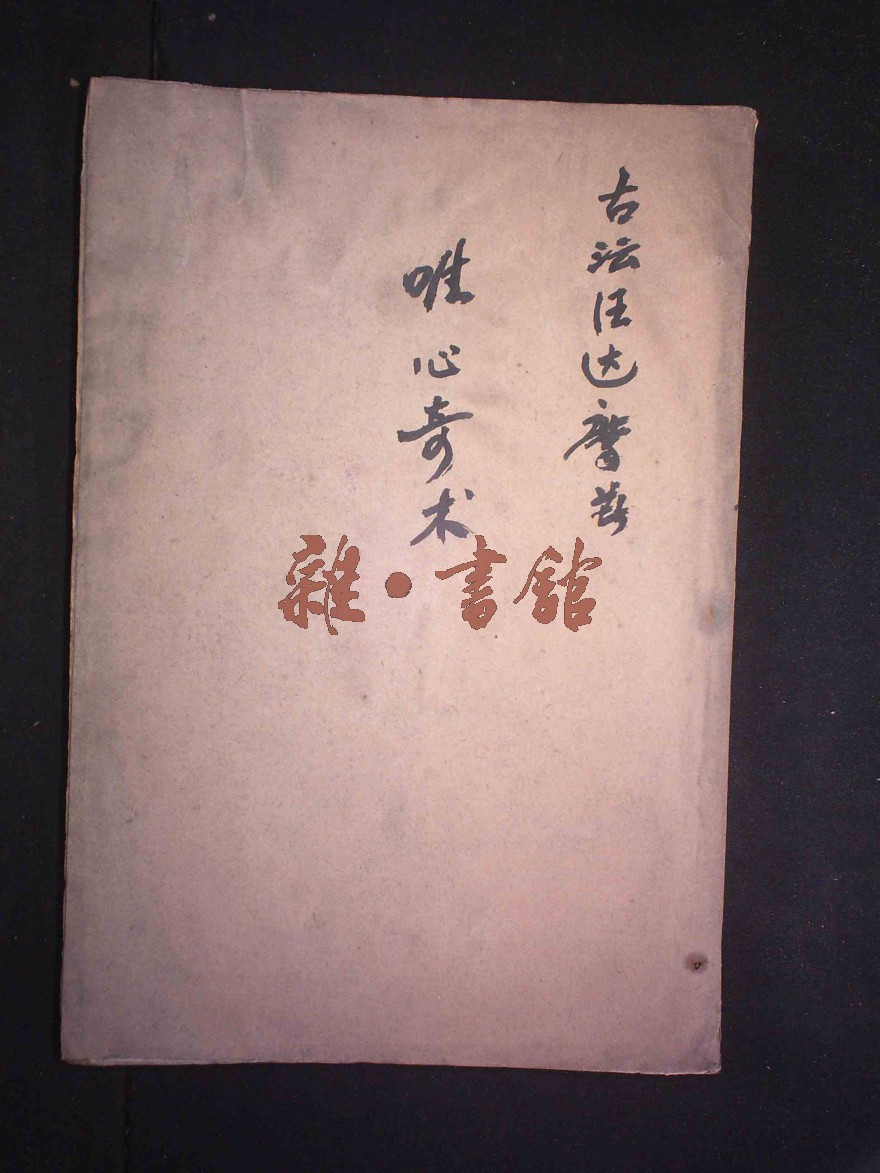 古坛汪达摩著
唯心奇术
雜·書館